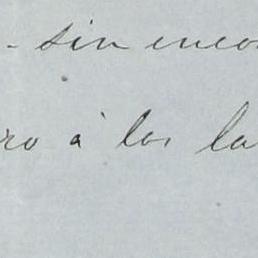 - sin enco
ro á los la